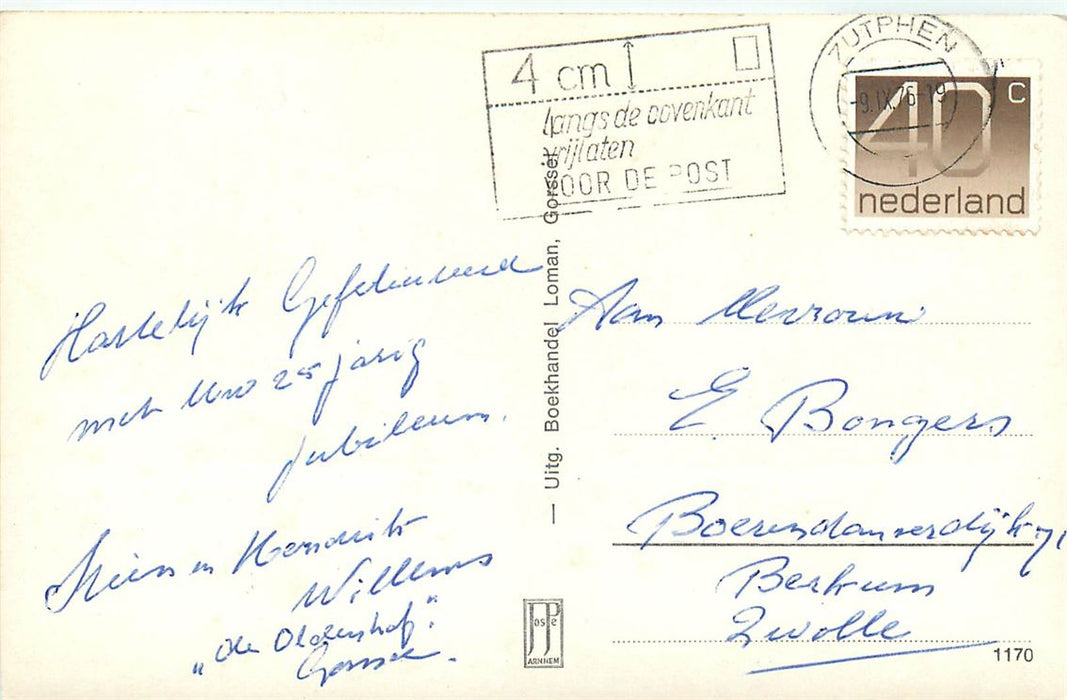 4 cm
langs de bovenkant
vrijlaten
VOOR DE POST
ZUTPHEN
-9.IX.76-19
40 c
nederland
Hartelijk Gefeliciteerd
met Uw 25 jarig
jubileum.
en Hendrik
Willems
„de Oldenhof".
Gorssel.
— Uitg. Boekhandel Loman, Gorssel
JosPé
ARNHEM
Aan Mevrouw
E. Bongers
Boerendanserdijk 71
Berkum
Zwolle
1170